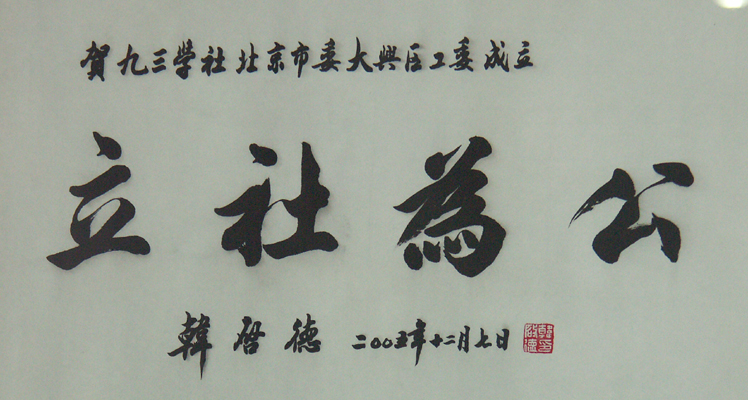 賀九三學社北京市委大興区工委成立
立社為公
韓啓德 二〇〇五年十二月七日